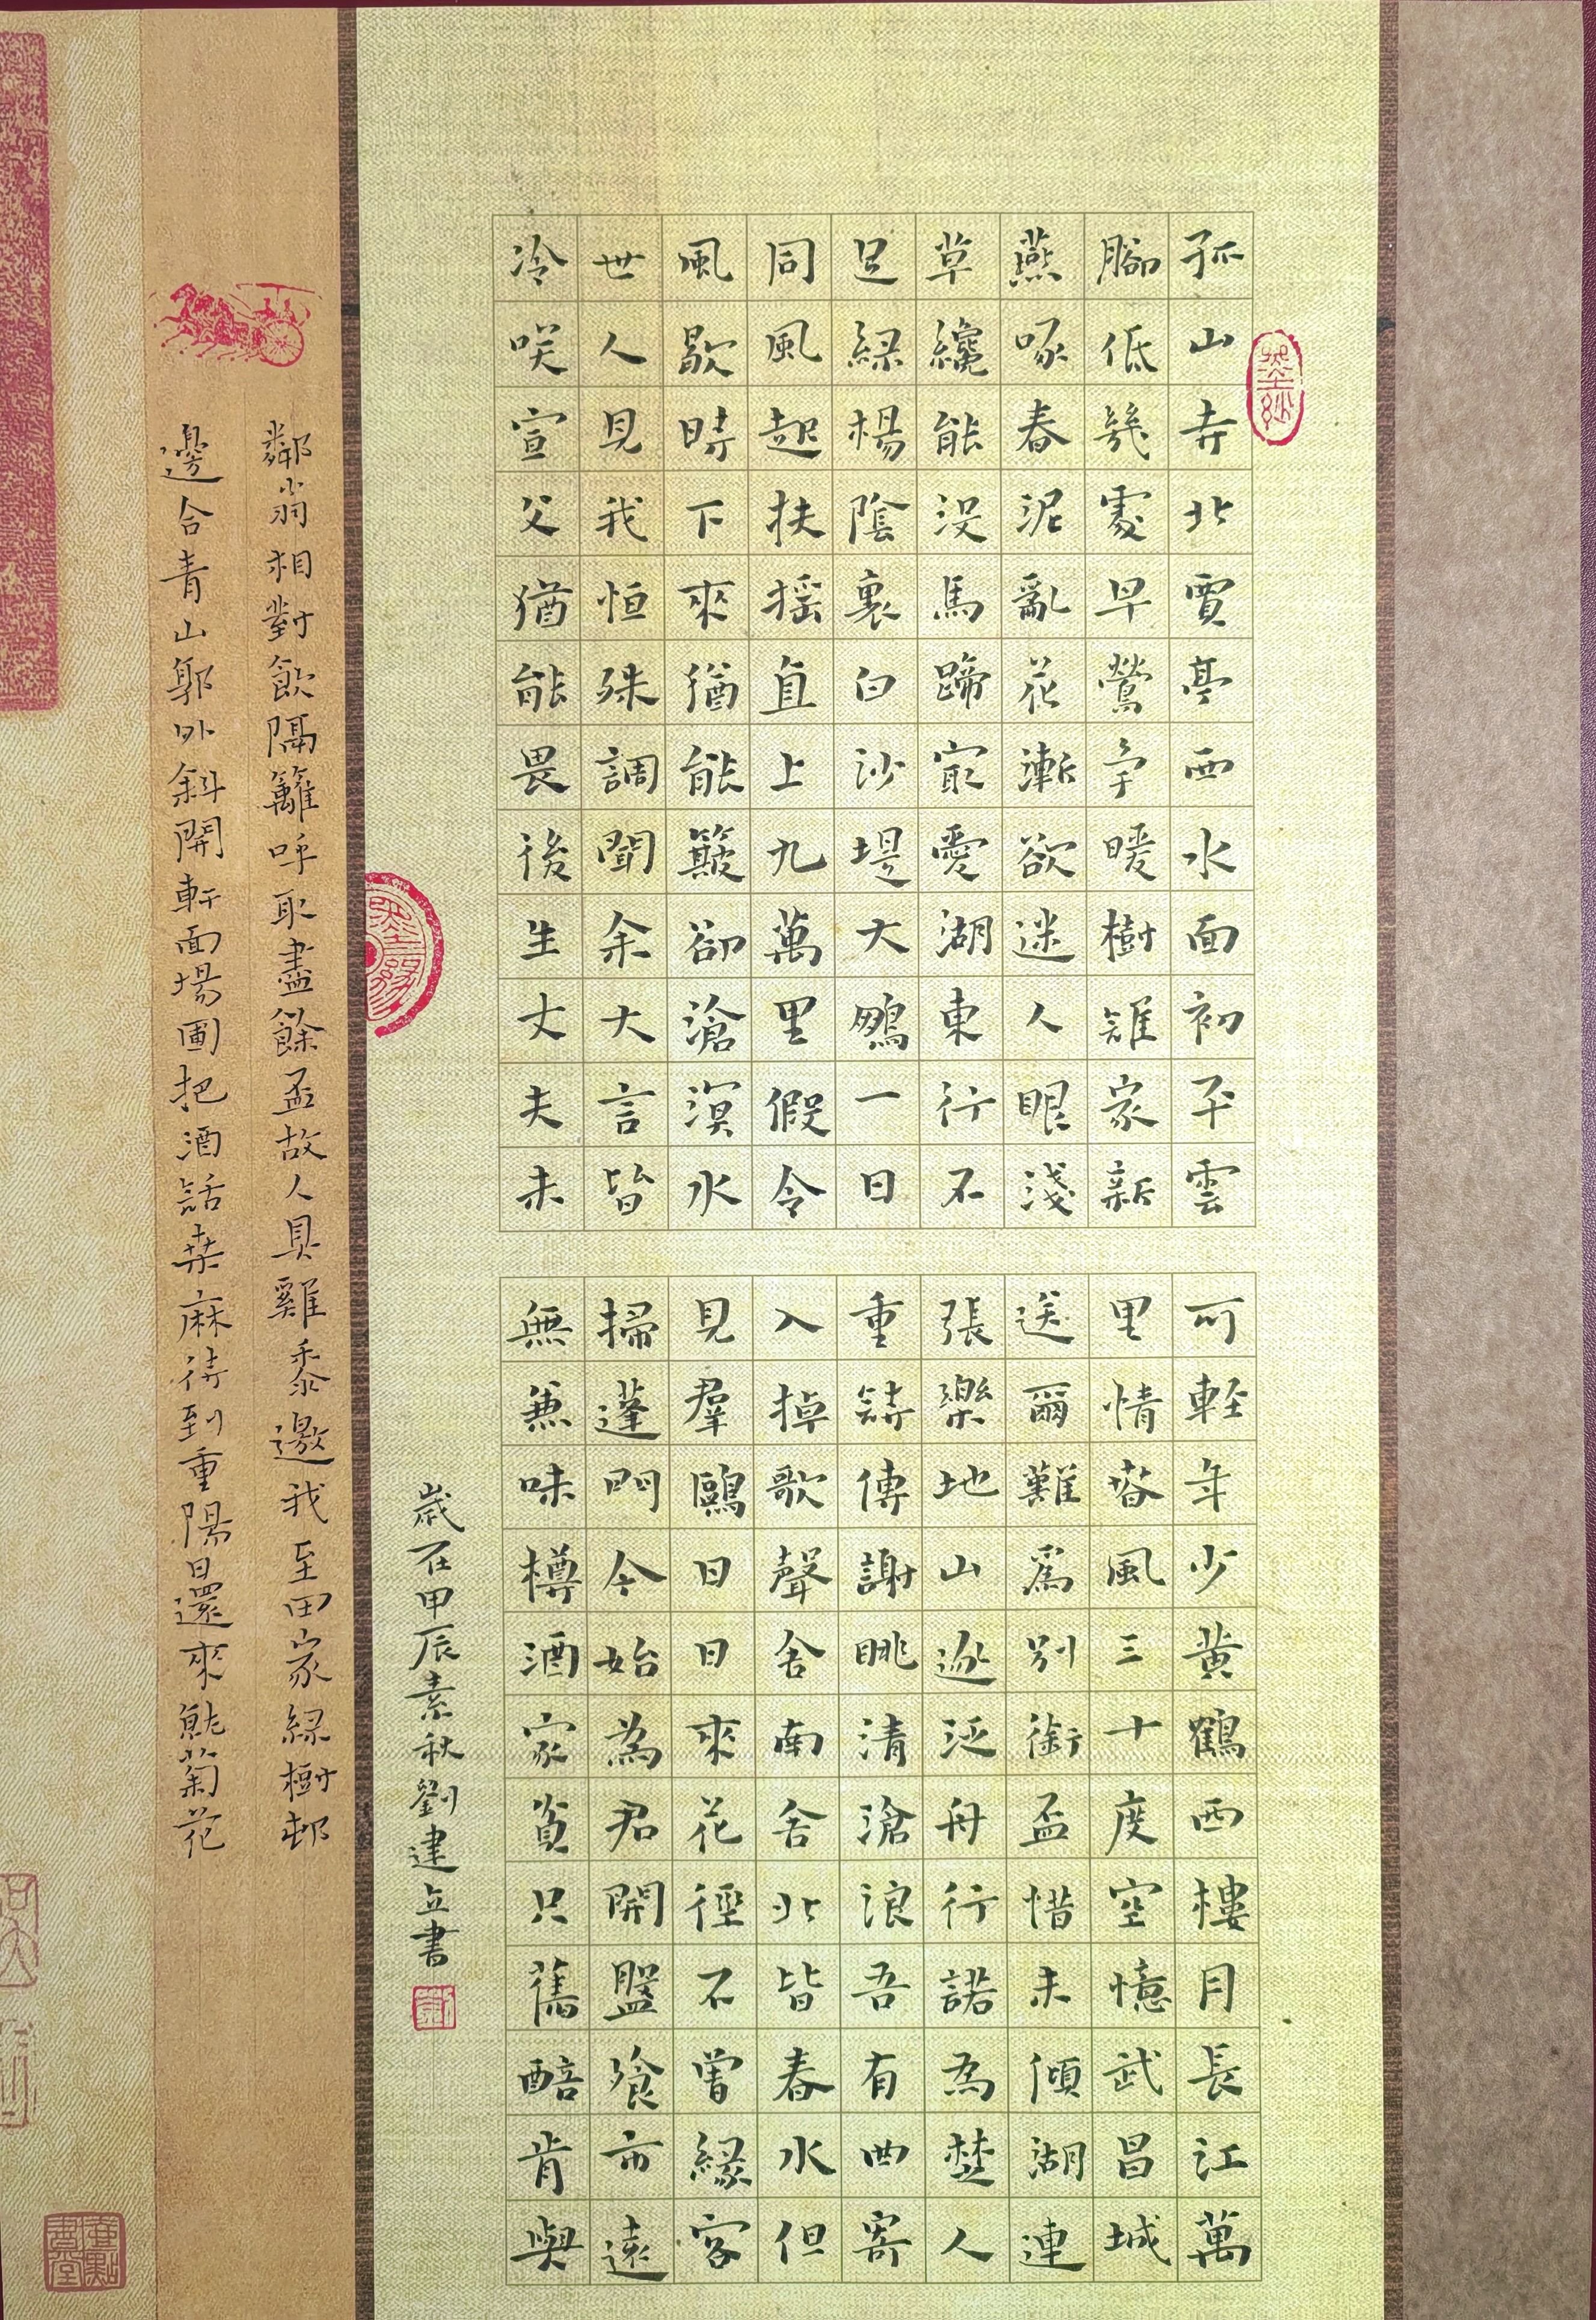 孤山寺北賈亭西水面初平雲
腳低幾處早鶯爭暖樹誰家新
燕啄春泥亂花漸欲迷人眼淺
草纔能沒馬蹄最愛湖東行不
足綠楊陰裏白沙堤大鵬一日
同風起扶搖直上九萬里假令
風歇時下來猶能簸卻滄溟水
世人見我恒殊調聞余大言皆
冷咲宣父猶能畏後生丈夫未
可輕年少黃鶴西樓月長江萬
里情春風三十度空憶武昌城
送爾難爲別銜盃惜未傾湖連
張樂地山逐泛舟行諾為楚人
重詩傳謝眺清滄浪吾有曲寄
入掉歌聲舍南舍北皆春水但
見羣鷗日日來花徑不曾緣客
掃蓬門今始為君開盤飧市遠
無兼味樽酒家貧只舊醅肯與
歲在甲辰素秋劉建立書
鄰翁相對飲隔籬呼取盡餘盃故人具雞黍邀我至田家綠樹邨
邊合青山郭外斜開軒面場圃把酒話桑麻待到重陽日還來就菊花